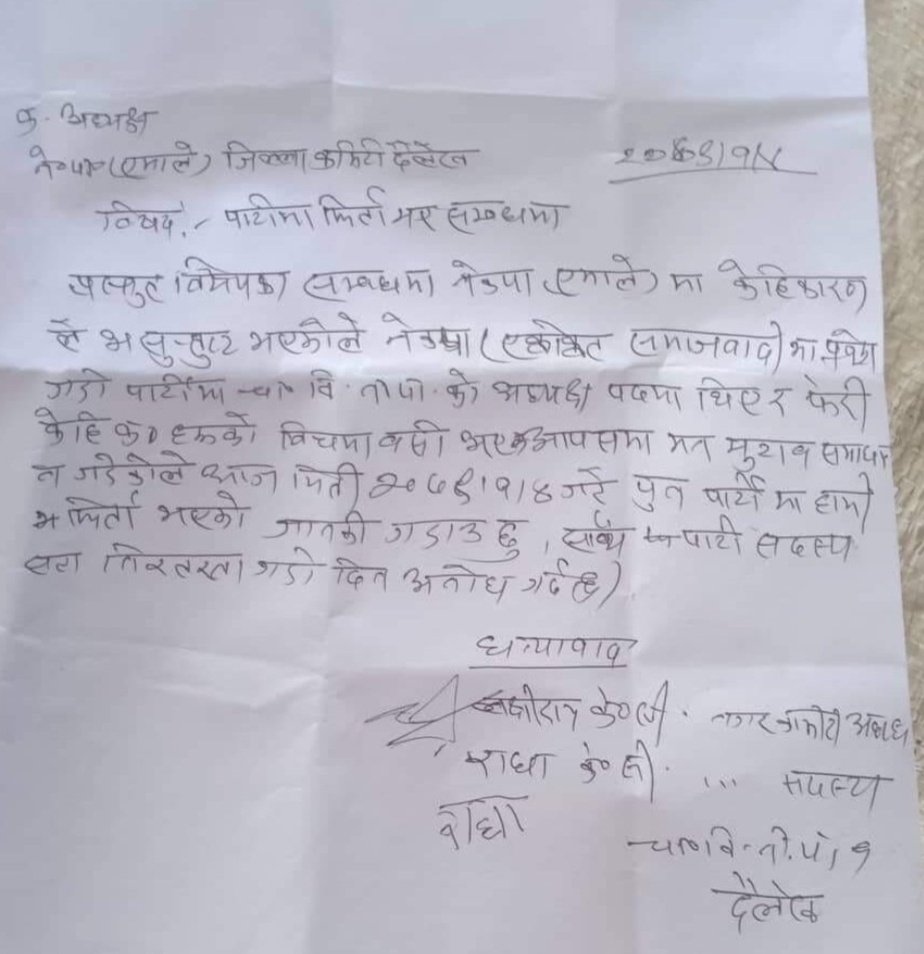 क. अध्यक्ष
ने०पा०(एमाले) जिल्ला कमिटी दैलेख
विषय:- पार्टीमा भिर्ता भए सम्बधमा
प्रस्तुत विषयका सम्बधमा नेकपा (एमाले) मा केहि कारण
ले असुन्तुष्ट भएकोले नेकपा (एकीकृत समाजवादी) मा प्रवेश
गडी पार्टीमा चा० वि. न०पा. को अध्यक्ष पदमा थिए र फेरी
केहि क० हरुको विचमा बसी आपसमा मत मुटाव समाधान
न गडेकोले आज मिती २०७९।१।४ गते पुन पार्टी मा हामी
भिर्ता भएको जानकी गडाउछु, साथै पार्टी सदस्य
निरन्तरता गडी दिन अनोध गर्दछु)
धन्यावाद
के०सी. नगर कमिटी अध्यक्ष
राधा के०सी. ... सदस्य
राधा
चा०वि.न.पा, १
दैलेख